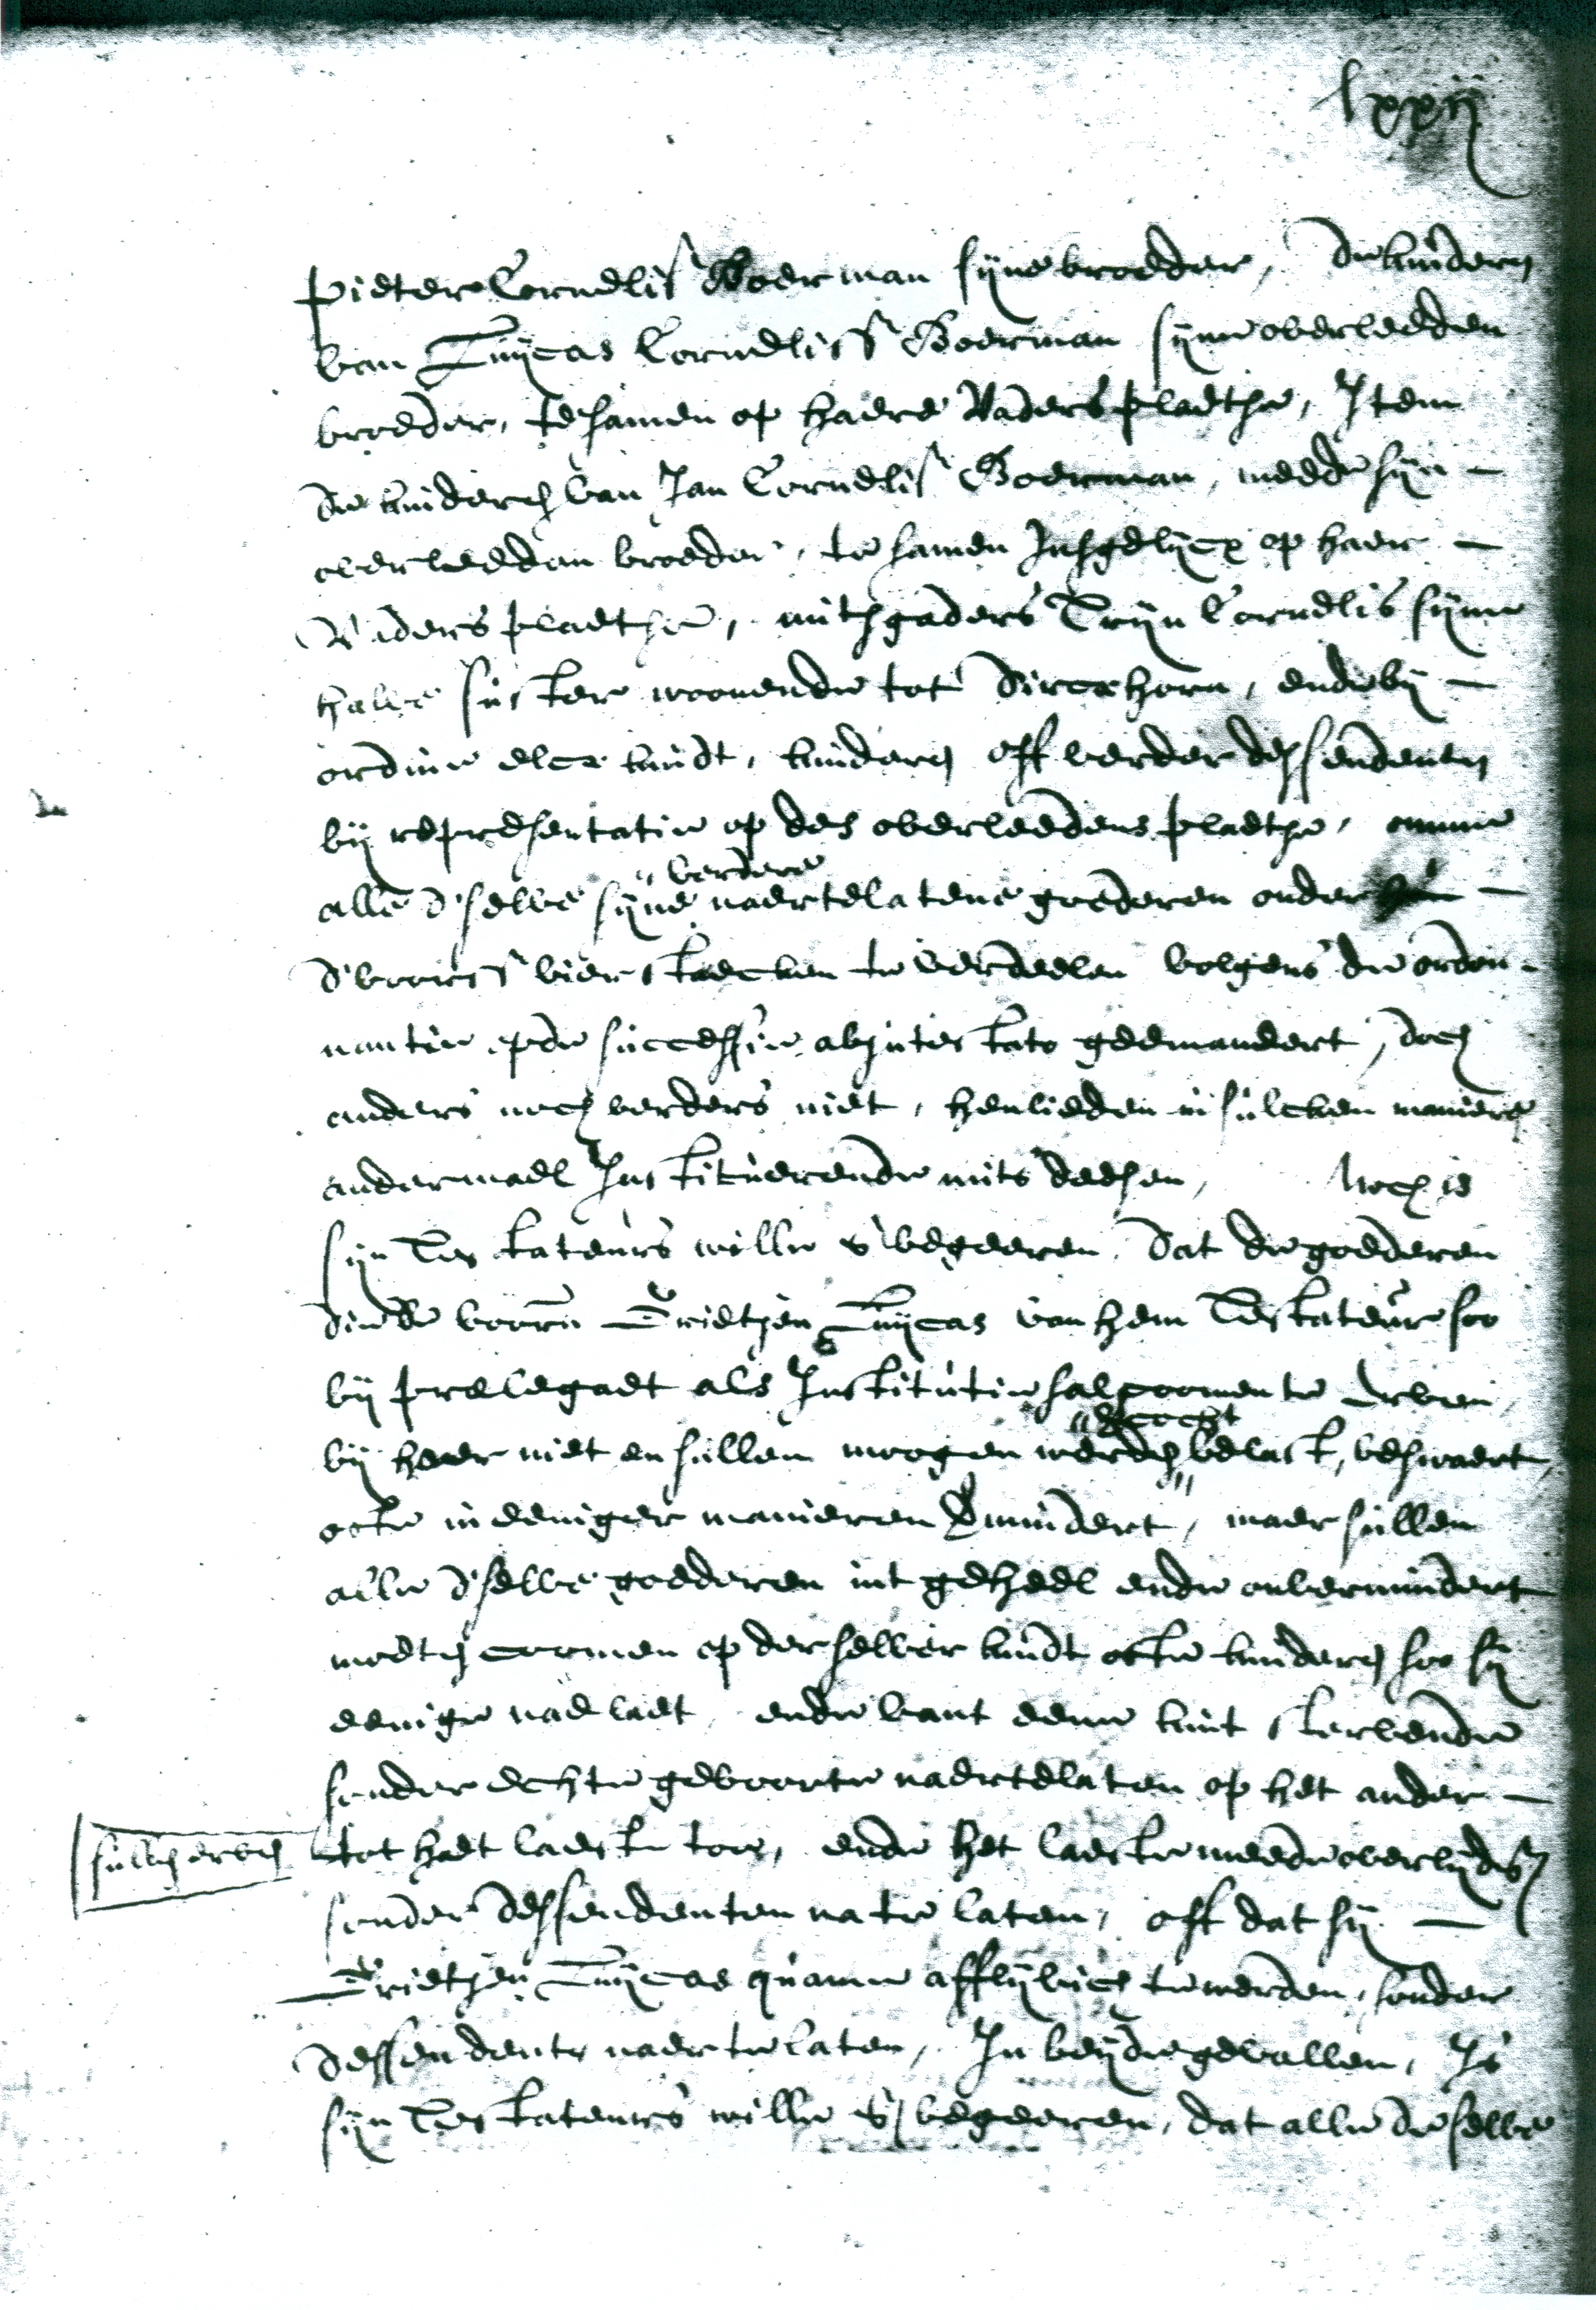 lxxij
Pieter Cornelisz Boerman syne broeder, de kinderen
van Luycas Cornelissz Boerman syne overleeden
broeder, tesamen op haere Vaders plaetse, Item
de kinderen van Jan Cornelisz Boerman, meede syn
overleeden broeder, te samen Insgelycx op haer
Vaders plaetse, mitsgaders Tryn Cornelis syne
halve suster woonende tot Dircxhorn, ende by
ordine elcx kindt, kinderen off verder dessendenten
by representatie op des overleedens plaetse, omme
verdere
alle d'selve syne naertelatene goederen onder
d'voorsz vier staecken te verdeelen volgens de ordon
nantie op de successie abintestato geemaneert, doch
anders noch verders niet, henlieden in sulcken maniere
andermael Institueerende mits deesen, Noch is
syn Testateurs wille en begeeren, dat de goederen
die de voorn Trietjen Luycas van hem Testateur soo
by prelegaet als Institutie sal coomen te erven,
vercocht
by haer niet en sullen moogen werden belast, beswaert,
ofte in eeniger manieren vermindert, maer sullen
alle d'selve goederen int geheel ende onvermindert
moeten coomen op derselver kindt ofte kinderen soo sy
eenige nae laet, ende vant eene kint stervende
sonder echte geboorte naertelaten op het ander
sullen erven
tot het laeste toe, ende het laeste meede overlydende
sonder dessendenten na te laten, off dat sy
Trietjen Luycas quame afflyvich te werden, sonder
dessendenten naer te laten, In beyde gevallen, Is
syn Testateurs wille en begeeren, dat alle de selve